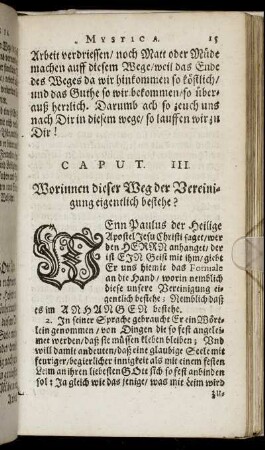 MYSTICA. 15
Arbeit verdriessen / noch Matt oder Müde
machen auff diesem Wege / weil das Ende
des Weges da wir hinkommen so köstlich /
und das Guthe so wir bekommen / so über-
auß herrlich. Darumb ach so zeuch uns
nach Dir in diesem wege / so lauffen wir zu
Dir!
CAPUT. III.
Worinnen dieser Weg der Vereini-
gung eigentlich bestehe?
WEnn Paulus der Heilige
Apostel Jesu Christi saget / wer
den HERRN anhanget / der
ist EIN Geist mit ihm / giebt
Er uns hiemit das Formale
an die Hand / worin nemblich
diese unsere Vereinigung ei-
gentlich bestehe; Nemblich daß
es im ANHANGEN bestehe.
2. In seiner Sprache gebraucht Er ein Wört-
lein genommen / von Dingen die so fest angelei-
met werden / daß sie müssen kleben bleiben; Und
will damit andeuten / daß eine glaubige Seele mit
feuriger / begierlicher innigkeit als mit einem festen
Leim an ihren liebesten GOtt sich so fest anbinden
sol: Ja gleich wie das jenige / was mit leim wird
zu-